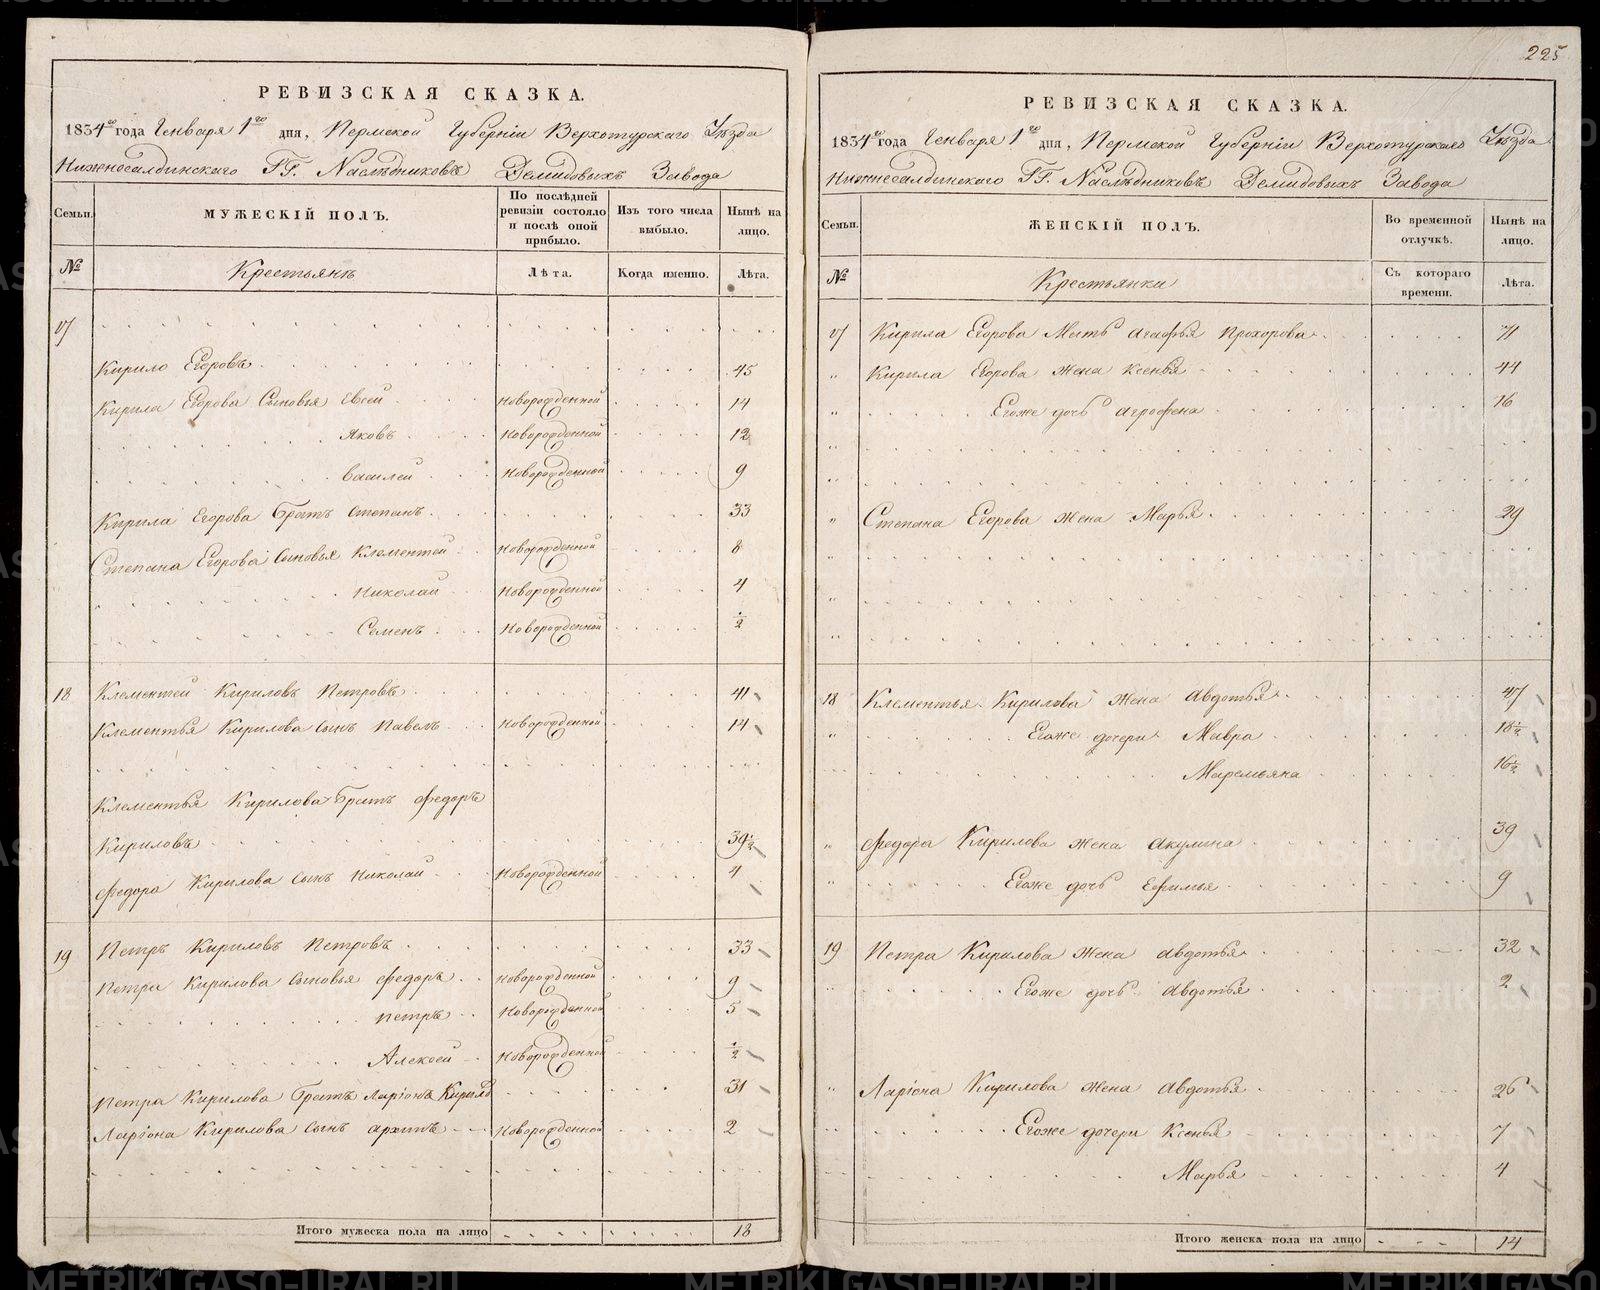 РЕВИЗСКАЯ СКАЗКА.
1834го года Генваря 1го дня, Пермской Губерніи Верхотурскаго Уѣзда
Нижнесалдинскаго ГГ. Наслѣдниковъ Демидовыхъ Завода
Семьи. МУЖЕСКІЙ ПОЛЪ. По послѣдней ревизіи состояло и послѣ оной прибыло. Изъ того числа выбыло. Нынѣ на лицо.
№ Крестьянъ Лѣта. Когда именно. Лѣта.
17
Кирило Егоровъ 45
Кирила Егорова Сыновья Евсей новорожденной 14
Яковъ Новорожденной 12
Василей Новорожденной 9
Кирила Егорова Братъ Степанъ 33
Степана Егорова Сыновья Клементей новорожденной 8
Николай новорожденной 4
Семенъ Новорожденной 1/2
18 Клементей Кириловъ Петровъ 41
Клементья Кирилова сынъ Павелъ Новорожденной 14
Клементья Кирилова Братъ Федоръ
Кириловъ 39 1/2
Федора Кирилова сынъ Николай Новорожденной 4
19 Петръ Кириловъ Петровъ 33
Петра Кирилова Сыновья Федоръ новорожденной 9
Петръ Новорожденной 5
Алексей Новорожденной 1/2
Петра Кирилова Братъ Ларіонъ Кирилов 31
Ларіона Кирилова сынъ архипъ Новорожденной 2
Итого мужеска пола на лицо 18
225
РЕВИЗСКАЯ СКАЗКА.
1834го года Генваря 1го дня, Пермской Губерніи Верхотурскаго Уѣзда
Нижнесалдинскаго ГГ. Наслѣдниковъ Демидовыхъ Завода
Семьи. ЖЕНСКІЙ ПОЛЪ. Во временной отлучкѣ. Нынѣ на лицо.
№ Крестьянки Съ котораго времени. Лѣта.
17 Кирила Егорова Мать агафья Прохорова 71
" Кирила Егорова жена Ксенья 44
" Егоже дочь агрофена 16
"
"
" Степана Егорова жена Марья 29
"
"
"
18 Клементья Кирилова жена авдотья 47
" Егоже дочери Мавра 18 1/2
Маремьяна 16 1/2
" Федора Кирилова жена акулина 39
" Егоже дочь Ефимья 9
19 Петра Кирилова жена авдотья 32
" Егоже дочь авдотья 2
" Ларіона Кирилова жена авдотья 26
" Егоже дочери Ксенья 7
Марья 4
Итого женска пола на лицо 14
METRIKI.GASO-URAL.RU